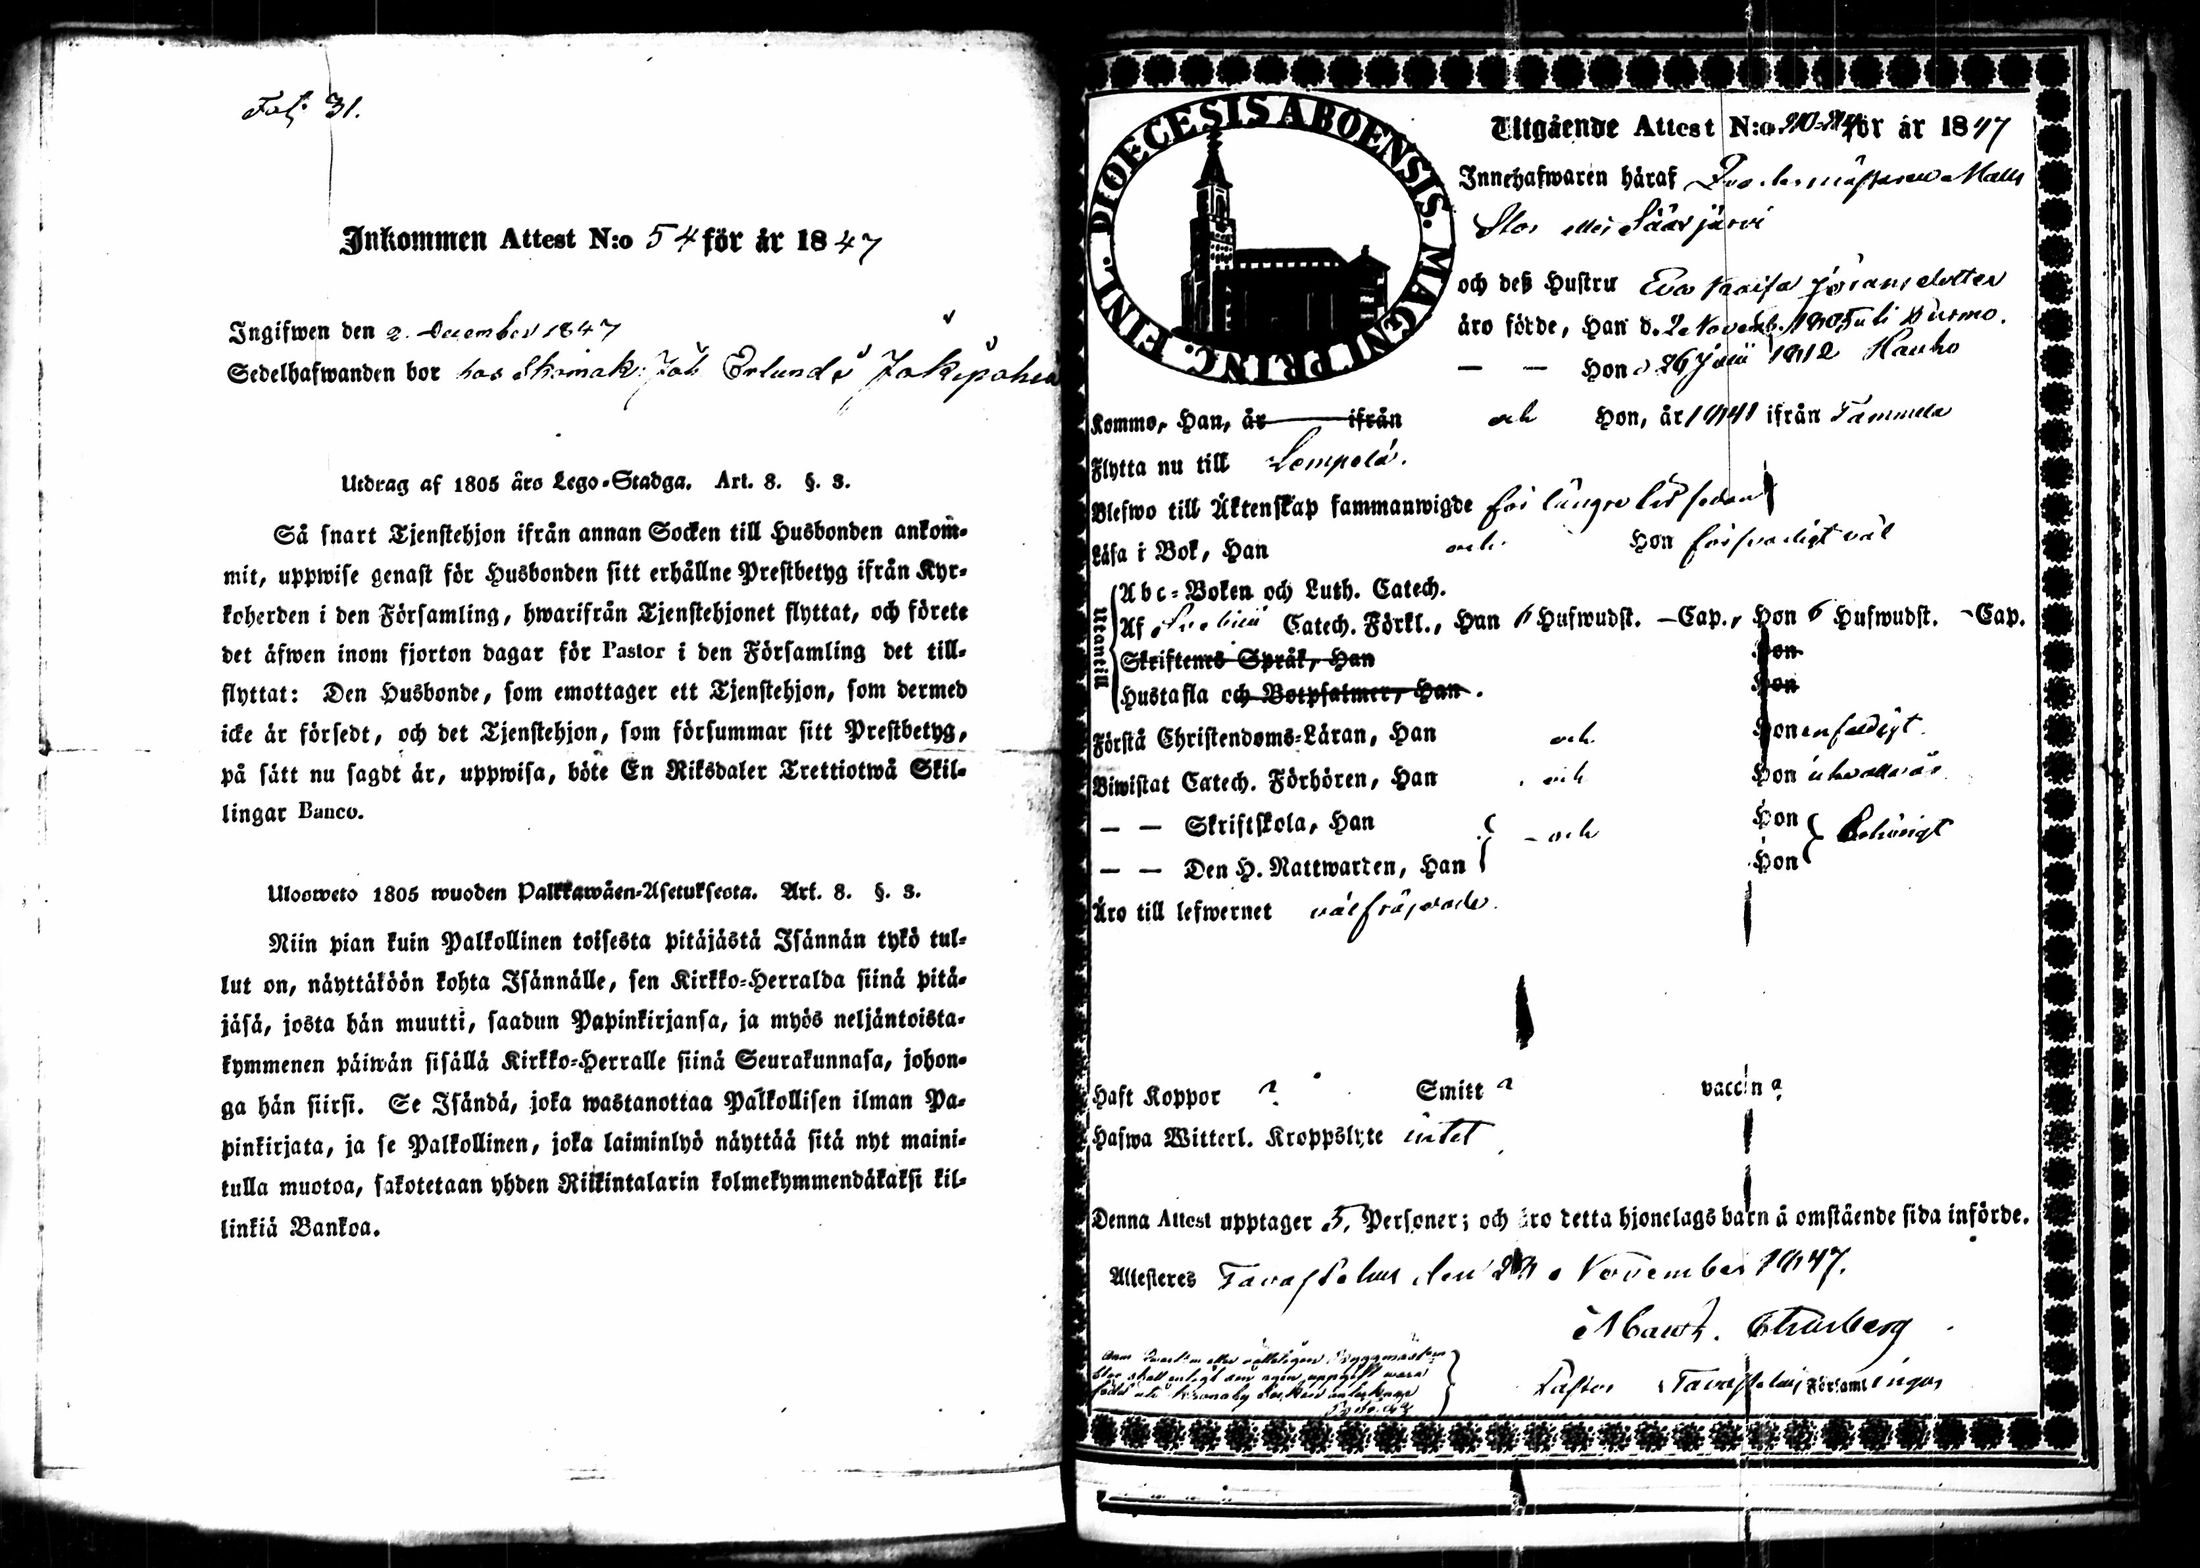 Fol: 31.
Inkommen Attest N:o 54 för år 1847
Ingifwen den 2. December 1847
Sedelhafwanden bor hos Skomak: Joh Erlund
Utdrag af 1805 års Lego-Stadga. Art. 8. §. 3.
Så snart Tjenstehjon ifrån annan Socken till Husbonden ankom-
mit, uppwise genast för Husbonden sitt erhållne Prestbetyg ifrån Kyr-
koherden i den Församling, hwarifrån Tjenstehjonet flyttat, och förete
det äfwen inom fjorton dagar för Pastor i den Församling det till-
flyttat: Den Husbonde, som emottager ett Tjenstehjon, som dermed
icke är försedt, och det Tjenstehjon, som försummar sitt Prestbetyg,
på sätt nu sagdt är, uppwisa, böte En Riksdaler Trettiotwå Skil-
lingar Banco.
Ulosweto 1805 wuoden Palkkawäen-Asetuksesta. Art. 8. §. 3.
Niin pian kuin Palkollinen toisesta pitäjästä Isännän tykö tul-
lut on, näyttäköön kohta Isännälle, sen Kirkko-Herralda siinä pitä-
jäsä, josta hän muutti, saadun Papinkirjansa, ja myös neljäntoista-
kymmenen päiwän sisällä Kirkko-Herralle siinä Seurakunnasa, johon-
ga hän siirsi. Se Isändä, joka wastanottaa Palkollisen ilman Pa-
pinkirjata, ja se Palkollinen, joka laiminlyö näyttää sitä nyt maini-
tulla muotoa, sakotetaan yhden Riikintalarin kolmekymmendäkaksi kil-
linkiä Bankoa.
DIOECESIS ABOENSIS. MAGNI PRINC. FINL.
Utgående Attest N:o för år 1847
Innehafwaren häraf Matts
Stor eller Säärjärvi
och deß Hustru Eva Kaisa Jöransdotter
äro födde, Han d. 2 Novemb. 1805 uti
— — Hon d 26 Junii 1812 Hauho
Komme, Han, år ifrån och Hon, år 1841 ifrån Tammela
Flytta nu till Lempelä.
Blefwo till Äktenskap sammanwigde för längre tid sedan
Läsa i Bok, Han och Hon försvarligt väl
Utantill
Abc-Boken och Luth. Catech.
Af Svebilii Catech. Förkl., Han 6 Hufwudst. —Cap., Hon 6 Hufwudst. —Cap.
Skriftenes Språk, Han Hon
Hustafla och Botpsalmer, Han Hon
Förstå Christendoms-Läran, Han och Hon enfaldigt
Biwistat Catech. Förhören, Han och Hon
— — Skriftskola, Han och Hon behörigt
— — Den H. Nattwarden, Han Hon
Äro till lefwernet välfräjdade.
Haft Koppor ? Smitt ? vaccin ?
Hafwa Witterl. Kroppslyte intet
Denna Attest upptager 5. Personer; och äro detta hjonelags barn å omstående sida införde.
Attesteres Tavastehus den November 1847.
Pastor i Tavastehus Församlingar